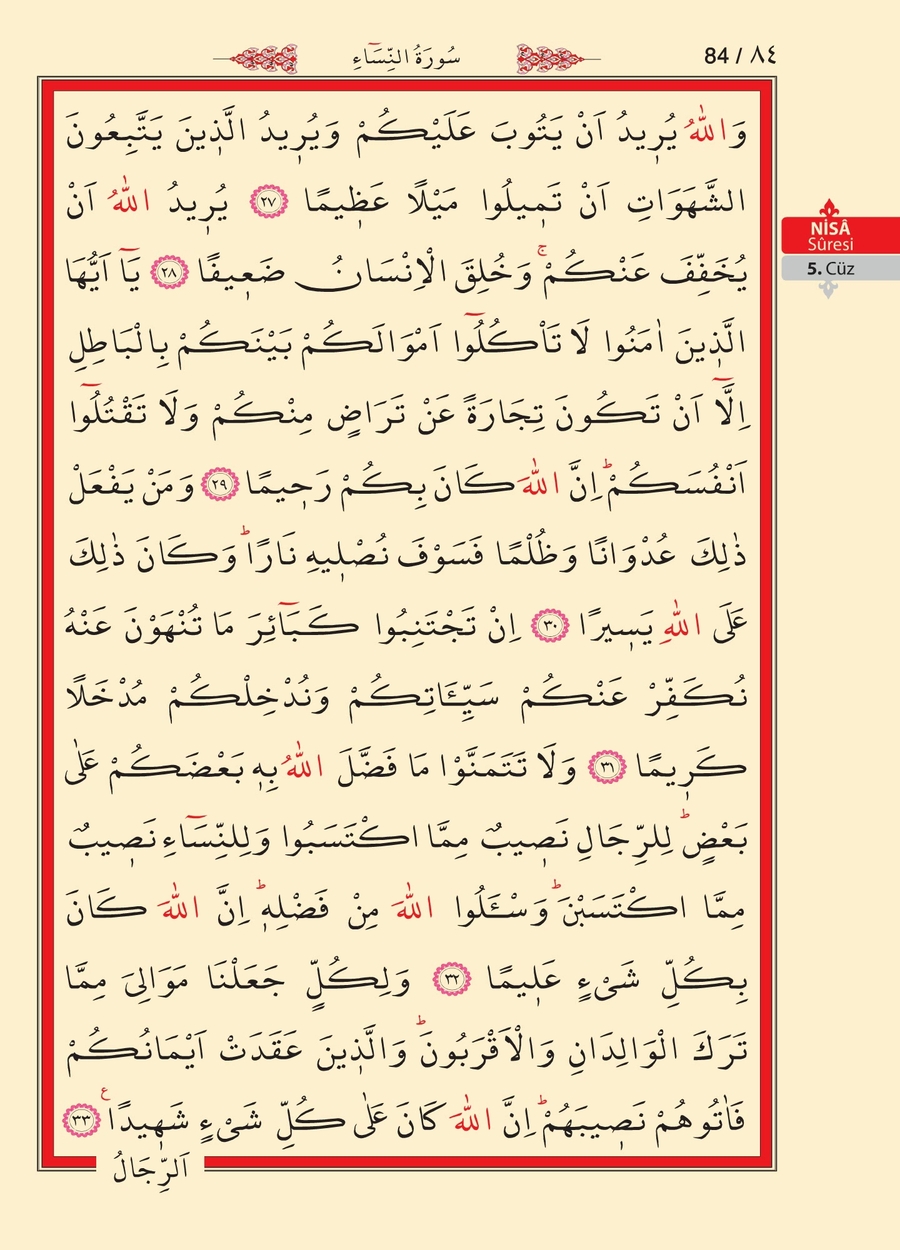 سُورَةُ النِّسَٓاءِ
84 / ٨٤
وَاللّٰهُ يُر۪يدُ اَنْ يَتُوبَ عَلَيْكُمْ وَيُر۪يدُ الَّذ۪ينَ يَتَّبِعُونَ
الشَّهَوَاتِ اَنْ تَم۪يلُوا مَيْلًا عَظ۪يمًا ﴿٢٧﴾ يُر۪يدُ اللّٰهُ اَنْ
يُخَفِّفَ عَنْكُمْۚ وَخُلِقَ الْاِنْسَانُ ضَع۪يفًا ﴿٢٨﴾ يَٓا اَيُّهَا
الَّذ۪ينَ اٰمَنُوا لَا تَأْكُلُٓوا اَمْوَالَكُمْ بَيْنَكُمْ بِالْبَاطِلِ
اِلَّٓا اَنْ تَكُونَ تِجَارَةً عَنْ تَرَاضٍ مِنْكُمْ وَلَا تَقْتُلُٓوا
اَنْفُسَكُمْۜ اِنَّ اللّٰهَ كَانَ بِكُمْ رَح۪يمًا ﴿٢٩﴾ وَمَنْ يَفْعَلْ
ذٰلِكَ عُدْوَانًا وَظُلْمًا فَسَوْفَ نُصْل۪يهِ نَارًاۜ وَكَانَ ذٰلِكَ
عَلَى اللّٰهِ يَس۪يرًا ﴿٣٠﴾ اِنْ تَجْتَنِبُوا كَبَٓائِرَ مَا تُنْهَوْنَ عَنْهُ
نُكَفِّرْ عَنْكُمْ سَيِّـَٔاتِكُمْ وَنُدْخِلْكُمْ مُدْخَلًا
كَر۪يمًا ﴿٣١﴾ وَلَا تَتَمَنَّوْا مَا فَضَّلَ اللّٰهُ بِه۪ بَعْضَكُمْ عَلٰى
بَعْضٍۜ لِلرِّجَالِ نَص۪يبٌ مِمَّا اكْتَسَبُوا وَلِلنِّسَٓاءِ نَص۪يبٌ
مِمَّا اكْتَسَبْنَۜ وَسْـَٔلُوا اللّٰهَ مِنْ فَضْلِه۪ۜ اِنَّ اللّٰهَ كَانَ
بِكُلِّ شَيْءٍ عَل۪يمًا ﴿٣٢﴾ وَلِكُلٍّ جَعَلْنَا مَوَالِيَ مِمَّا
تَرَكَ الْوَالِدَانِ وَالْاَقْرَبُونَۜ وَالَّذ۪ينَ عَقَدَتْ اَيْمَانُكُمْ
فَاٰتُوهُمْ نَص۪يبَهُمْۜ اِنَّ اللّٰهَ كَانَ عَلٰى كُلِّ شَيْءٍ شَه۪يدًا ع ﴿٣٣﴾
اَلرِّجَالُ
NİSÂ
Sûresi
5. Cüz